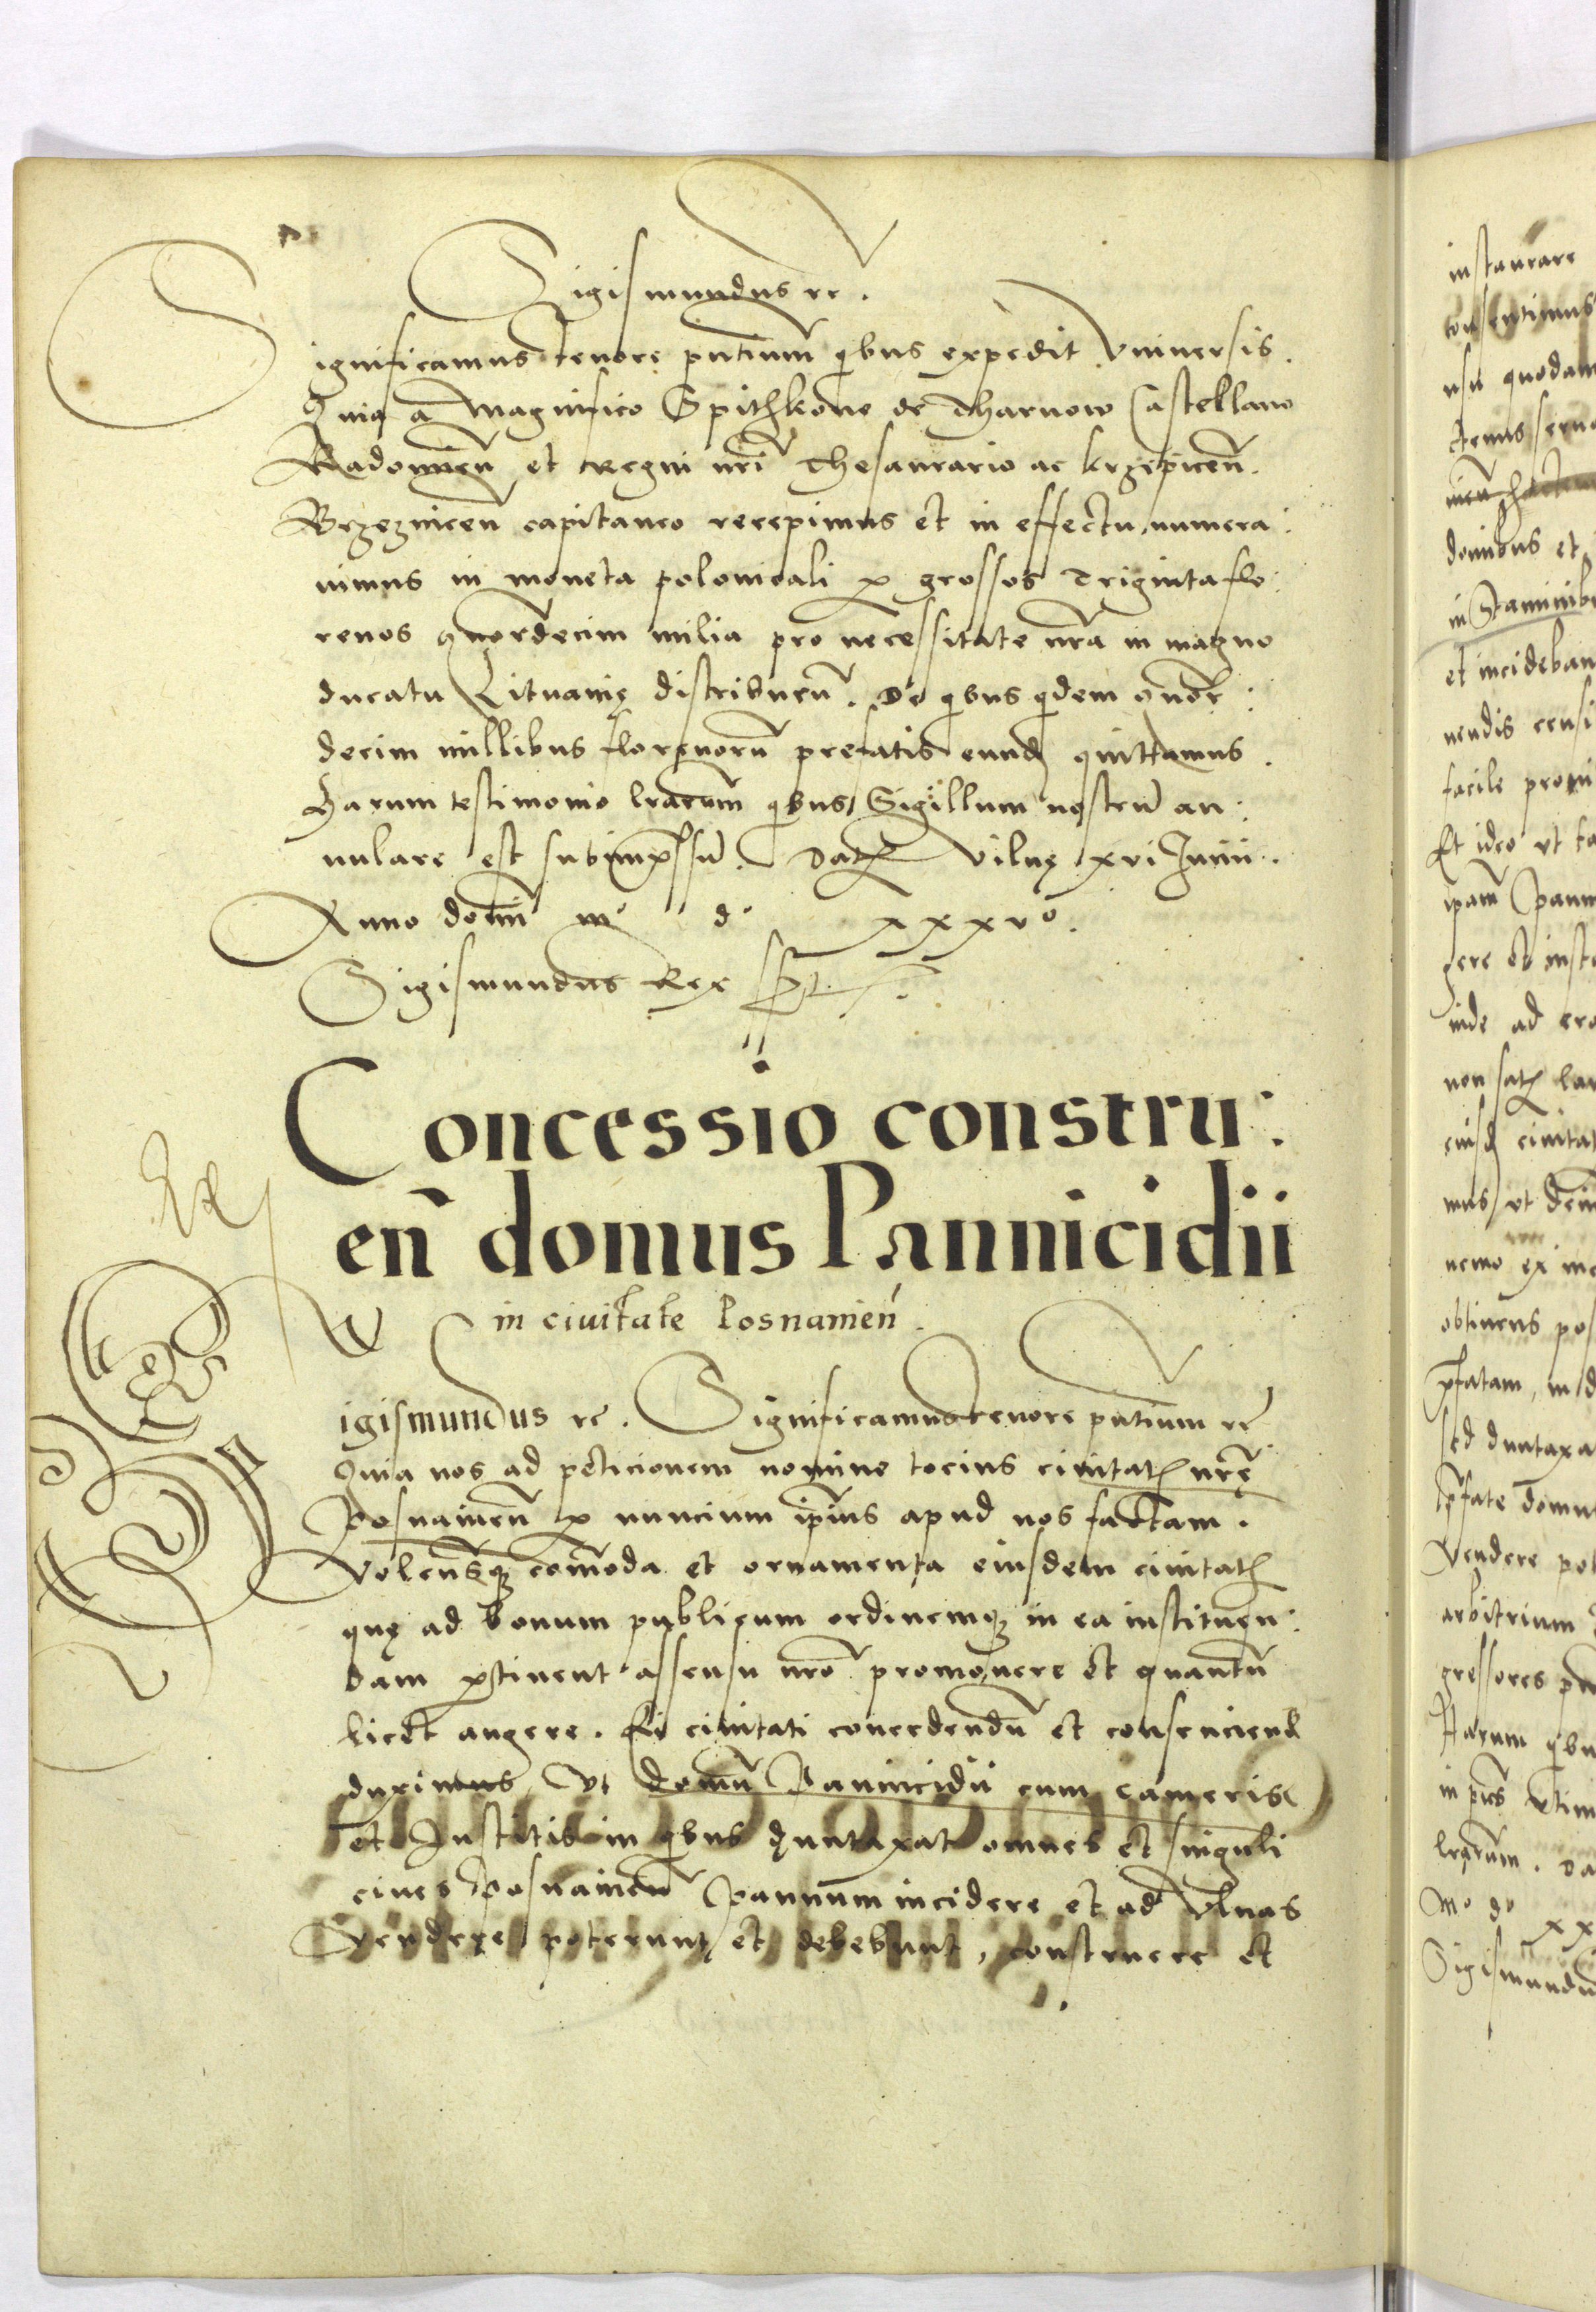 Sigismundus rc.
Significamus tenore pntium qbus expedit Vniversis.
Quia a Magnifico Spithkone de Tharnow Castellano
Radomien et Regni nri Thesaurario ac krzepicen.
Brzeznicen capitaneo recepimus et in effectu numera:
uimus in moneta polonicali p grossos Triginta flo:
renos quordecim milia pro necessitate nra in magno
ducatu Lituanię distribuen. De qbus qdem quor:
decim millibus florenorū prefatis eund quittamus.
Harum testimonio lrarum qbus Sigillum nostrū an:
nulare est subimpssū. Dat Vilnę xvi Junii.
Anno domi mº dº xxxvº.
Sigismundus Rex sst.
Concessio constru:
en domus Pannicidii
in ciuitate Posnanien.
Sigismundus rc. Significamus tenore pntium rc
Quia nos ad peticionem nomine tocius ciuitat nrę
Posnanien p nuncium ipius apud nos factam.
Volentsq comoda et ornamenta eiusdem ciuitat
quę ad bonum publicum ordinemq in ea instituen:
dam ptinent assensu nro promouere et quantū
licet augere. Ei ciuitati concedendū et consenciend
duximus, Vt domū Pannicidii cum cameris
et Institis in qbus duntaxat omnes et singuli
ciues Posnanien Pannum incidere et ad Vlnas
Vendere poterunt et debebunt, construere et
instaurare
consentimus
usu quodam
tenus serua
domibus et
in Staminib
et incideban
uendis censi
facile proui
Et ideo vt ta
ipam Pann
gere et insta
inde ad era
non sat lar
eiusd ciuitat
mus, vt dein
nemo ex inc
obtinens pos
pfatam, in d
sed duntaxa
pfate domu
Vendere pot
arbitrium
gressores
Harum qbu
lrarum. Da
Mº dº
xx
Sigismundu